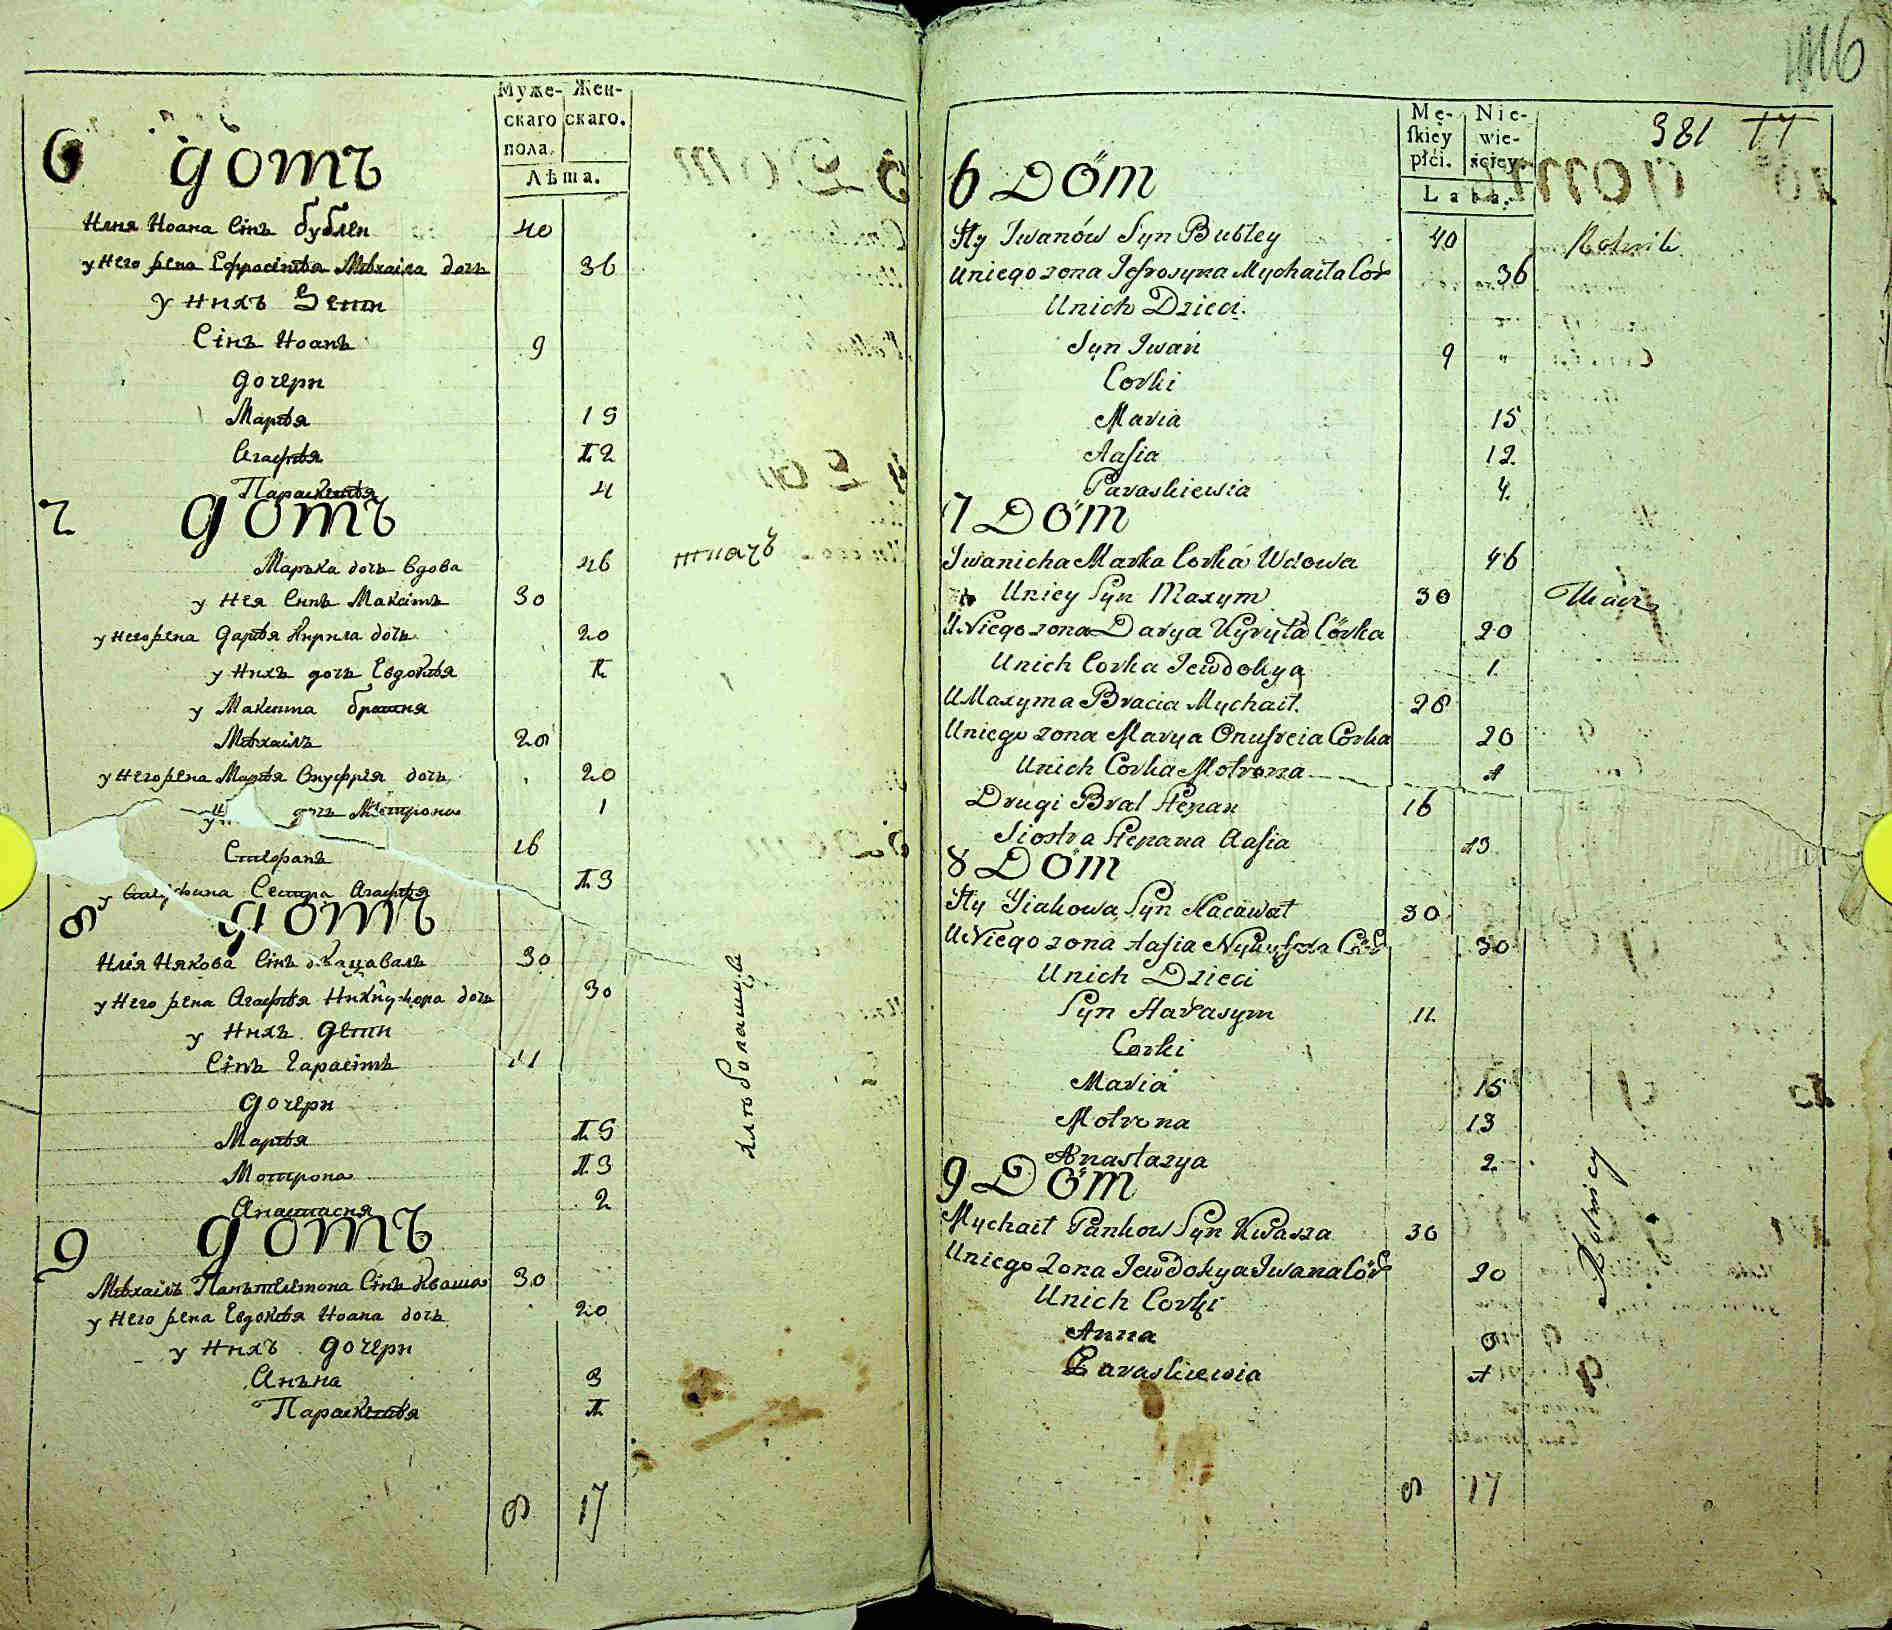 Муже-
скаго
пола.
Жен-
скаго.
Лѣта.
6 домъ
Илия Иоана Синъ бублеи 40
у него жена Ефросиния Михаила дочь 36
у нихъ дети
Синъ Иоанъ 9
дочери
Мария 15
Агафия 12
Параскевия 4
7 домъ
Марька дочь вдова 46 ткачъ
у нея Синъ Максимъ 30
у него жена Дария Кирила дочь 20
у нихъ дочь Евдокия 1
у Максима братия
Михаилъ 28
у него жена Мария Онуфрия дочь 20
дочь Мотрона 1
Стефанъ 16
Сестра Агафия 13
8 домъ
Илия Иякова Синъ Кацавалъ 30
у него жена Агафия Никифора дочь 30
у нихъ дети
Синъ Гарасимъ 11
дочери
Мария 15
Мотрона 13
Анастасия 2
хлѣбопашцы
9 домъ
Михаилъ Панътелимона Синъ Кваша 30
у него жена Евдокия Иоана дочь 20
у нихъ дочери
Анъна 3
Параскевия 1
8 17
116
Mę-
ſkiey
płći.
Nie-
wie-
śćiey.
Lata.
381 77
6 Dom
Ily Iwanów Syn Bubley 40 Rolnik
Uniego zona Jefrosyna Mychaiła Cor 36
Unich Dzieci
Syn Iwan 9 "
Corki
Maria 15
Aafia 12
Paraskiewia 4
7 Dom
Iwanicha Marka Corka Wdowa 46
Uniey Syn Maxym 30 Tkacz
UNiego zona Darya Kyryła Córka 20
Unich Corka Jewdokya 1
UMaxyma Bracia Mychaił 28
Uniego zona Marya Onufreia Corka 20
Unich Corka Motrona 1
Drugi Brat Stepan 16
Siostra Stepana Aafia 13
8 Dom
Ily Yiakowa Syn Kacawał 30
UNiego zona Aafia Nykyfora Cór 30
Unich Dzieci
Syn Harasym 11
Corki
Maria 15
Motrona 13
Anastazya 2
Rolnicy
9 Dom
Mychaił Pankow Syn Kwasza 30
Uniego zona Jewdokya Iwana Cór 20
Unich Corki
Anna 3
Paraskiewia 1
8 17